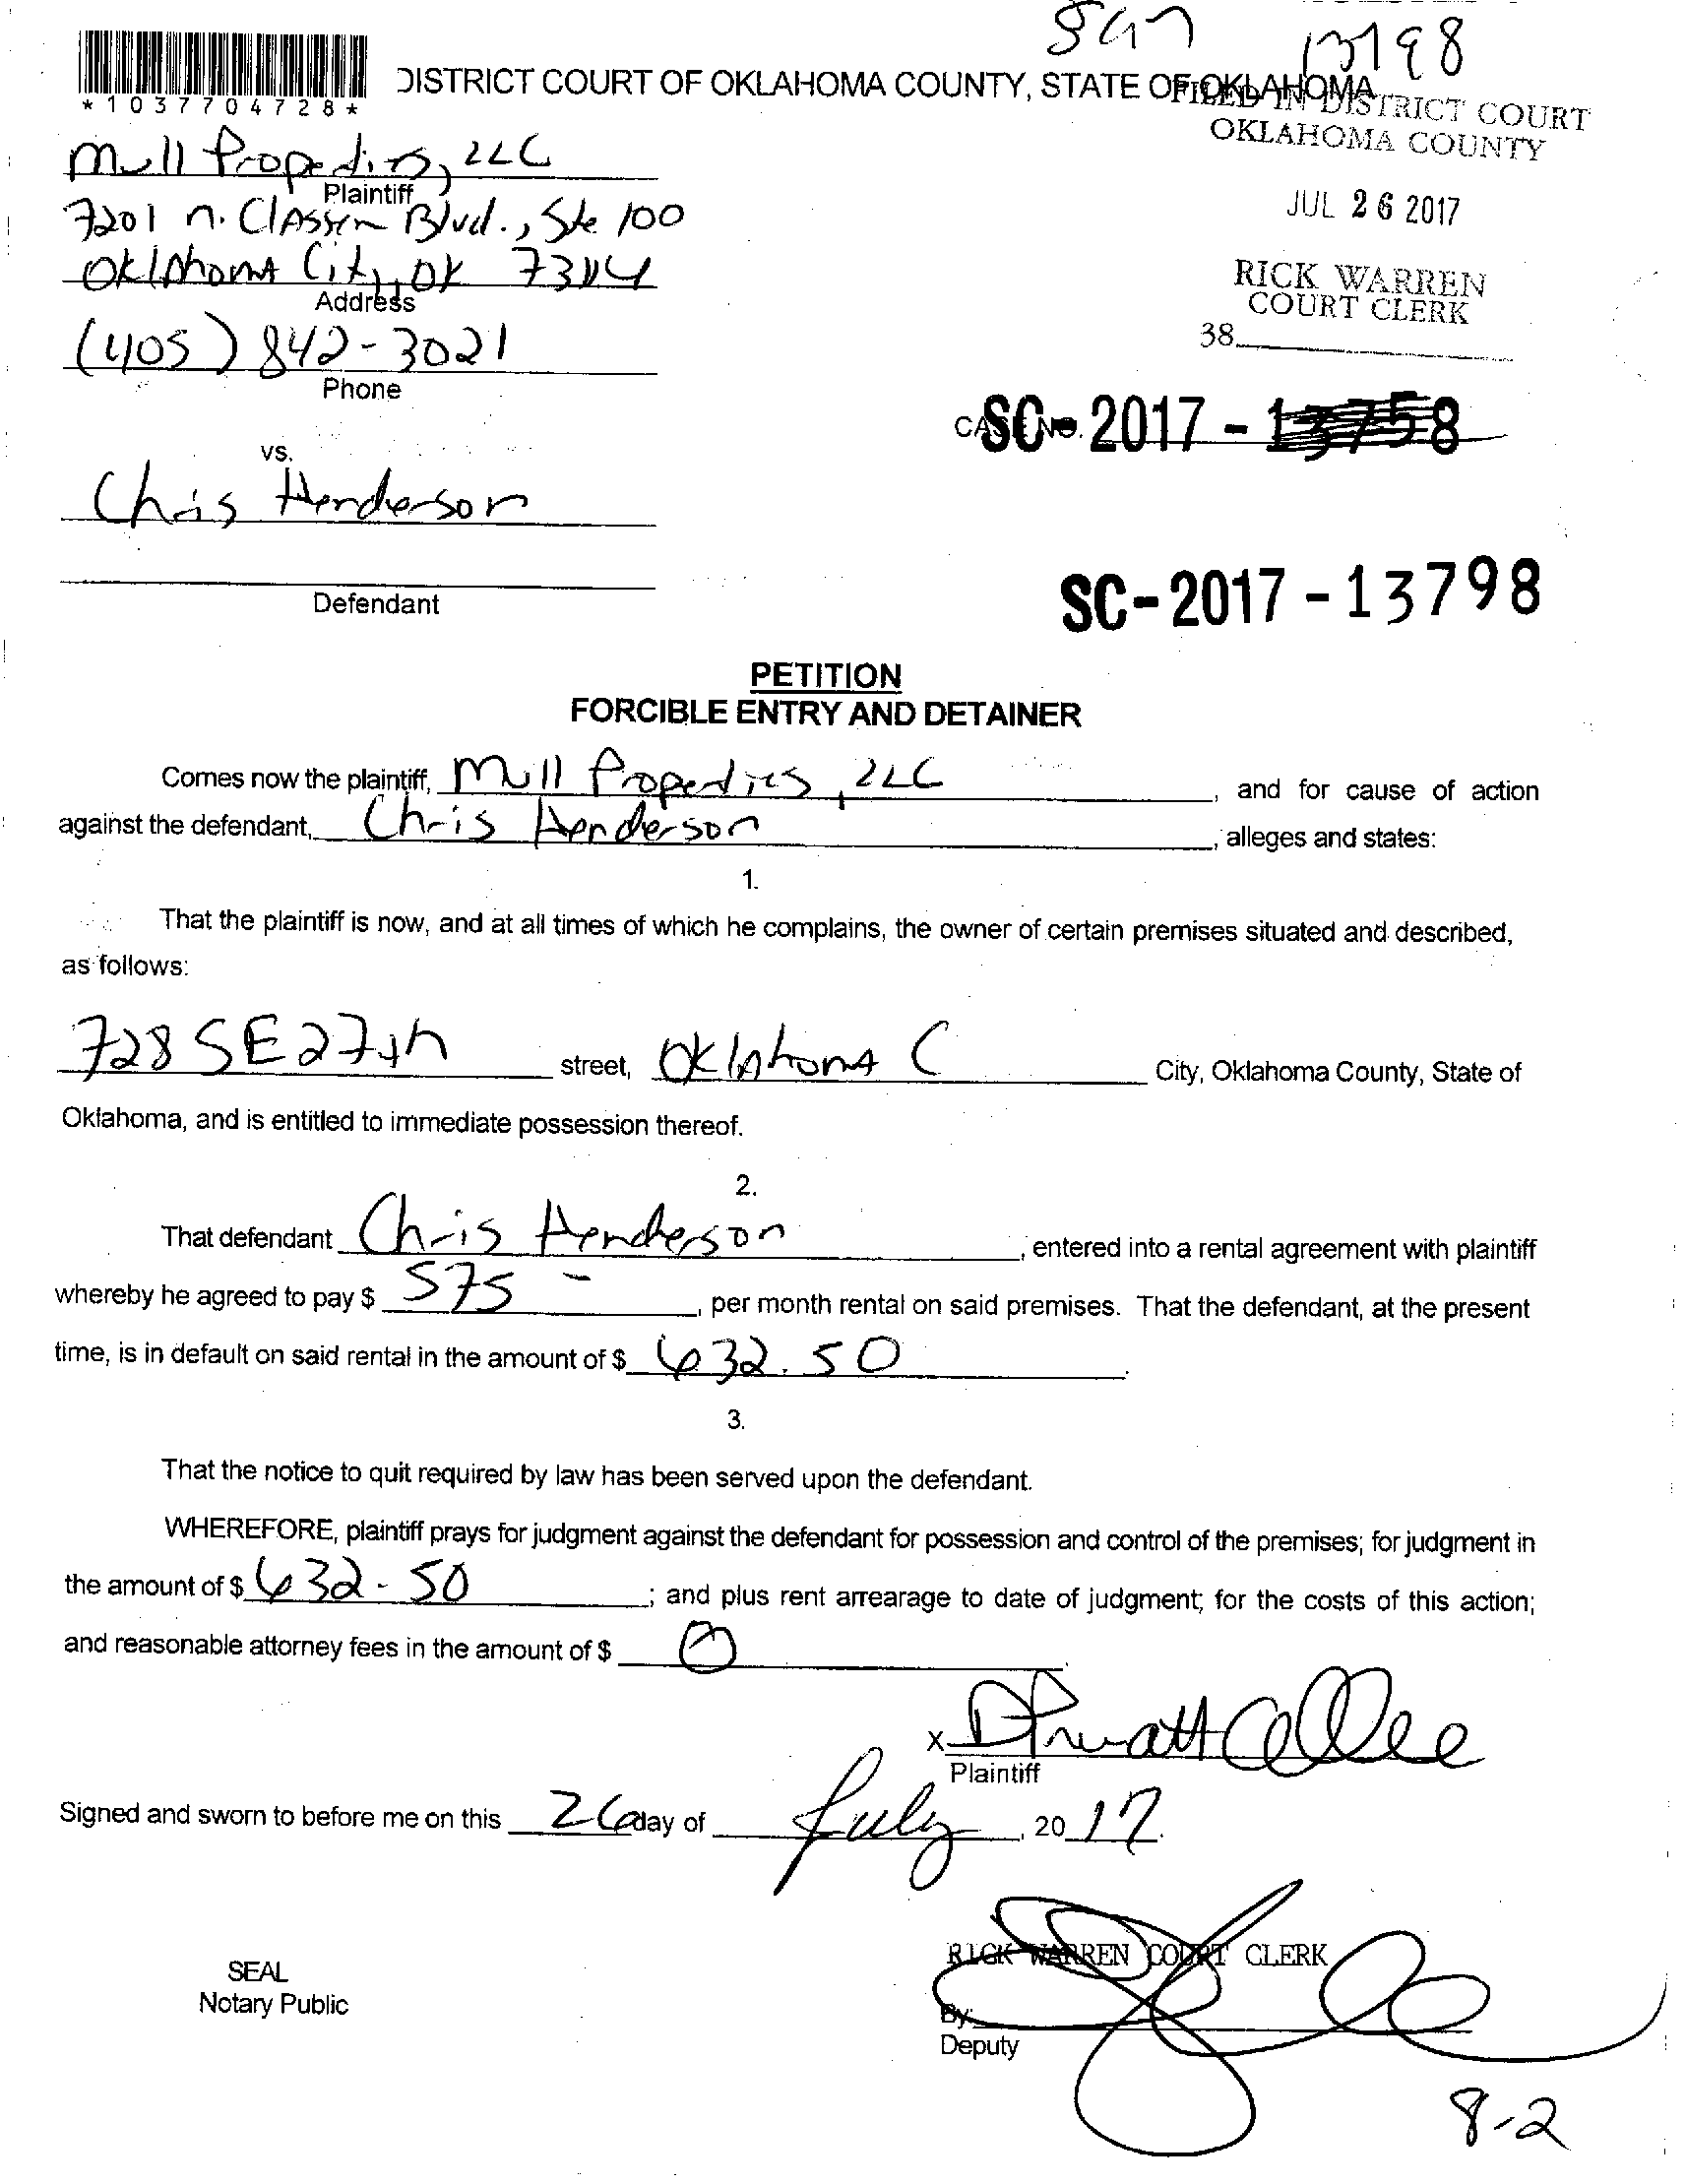 13798
*1037704728*
DISTRICT COURT OF OKLAHOMA COUNTY, STATE OF OKLAHOMA
FILED IN DISTRICT COURT
OKLAHOMA COUNTY
Mull Properties, LLC
Plaintiff
JUL 26 2017
7201 N. Classen Blvd., Ste 100
Oklahoma City, OK
Address
RICK WARREN
COURT CLERK
38
(405) 842-3021
Phone
CASE NO. SC-2017-13758
vs.
Chris Henderson
Defendant
SC-2017-13798
PETITION
FORCIBLE ENTRY AND DETAINER
Comes now the plaintiff, Mull Properties, LLC, and for cause of action
against the defendant, Chris Henderson, alleges and states:
1.
That the plaintiff is now, and at all times of which he complains, the owner of certain premises situated and described,
as follows:
728 SE 27th street, Oklahoma C City, Oklahoma County, State of
Oklahoma, and is entitled to immediate possession thereof.
2.
That defendant Chris Henderson, entered into a rental agreement with plaintiff
whereby he agreed to pay $ 575 -, per month rental on said premises. That the defendant, at the present
time, is in default on said rental in the amount of $ 632.50.
3.
That the notice to quit required by law has been served upon the defendant.
WHEREFORE, plaintiff prays for judgment against the defendant for possession and control of the premises; for judgment in
the amount of $ 632-50; and plus rent arrearage to date of judgment; for the costs of this action;
and reasonable attorney fees in the amount of $ 0.
X
Plaintiff
Signed and sworn to before me on this 26 day of July, 2017.
RICK WARREN COURT CLERK
SEAL
Notary Public
By:
Deputy
8-2